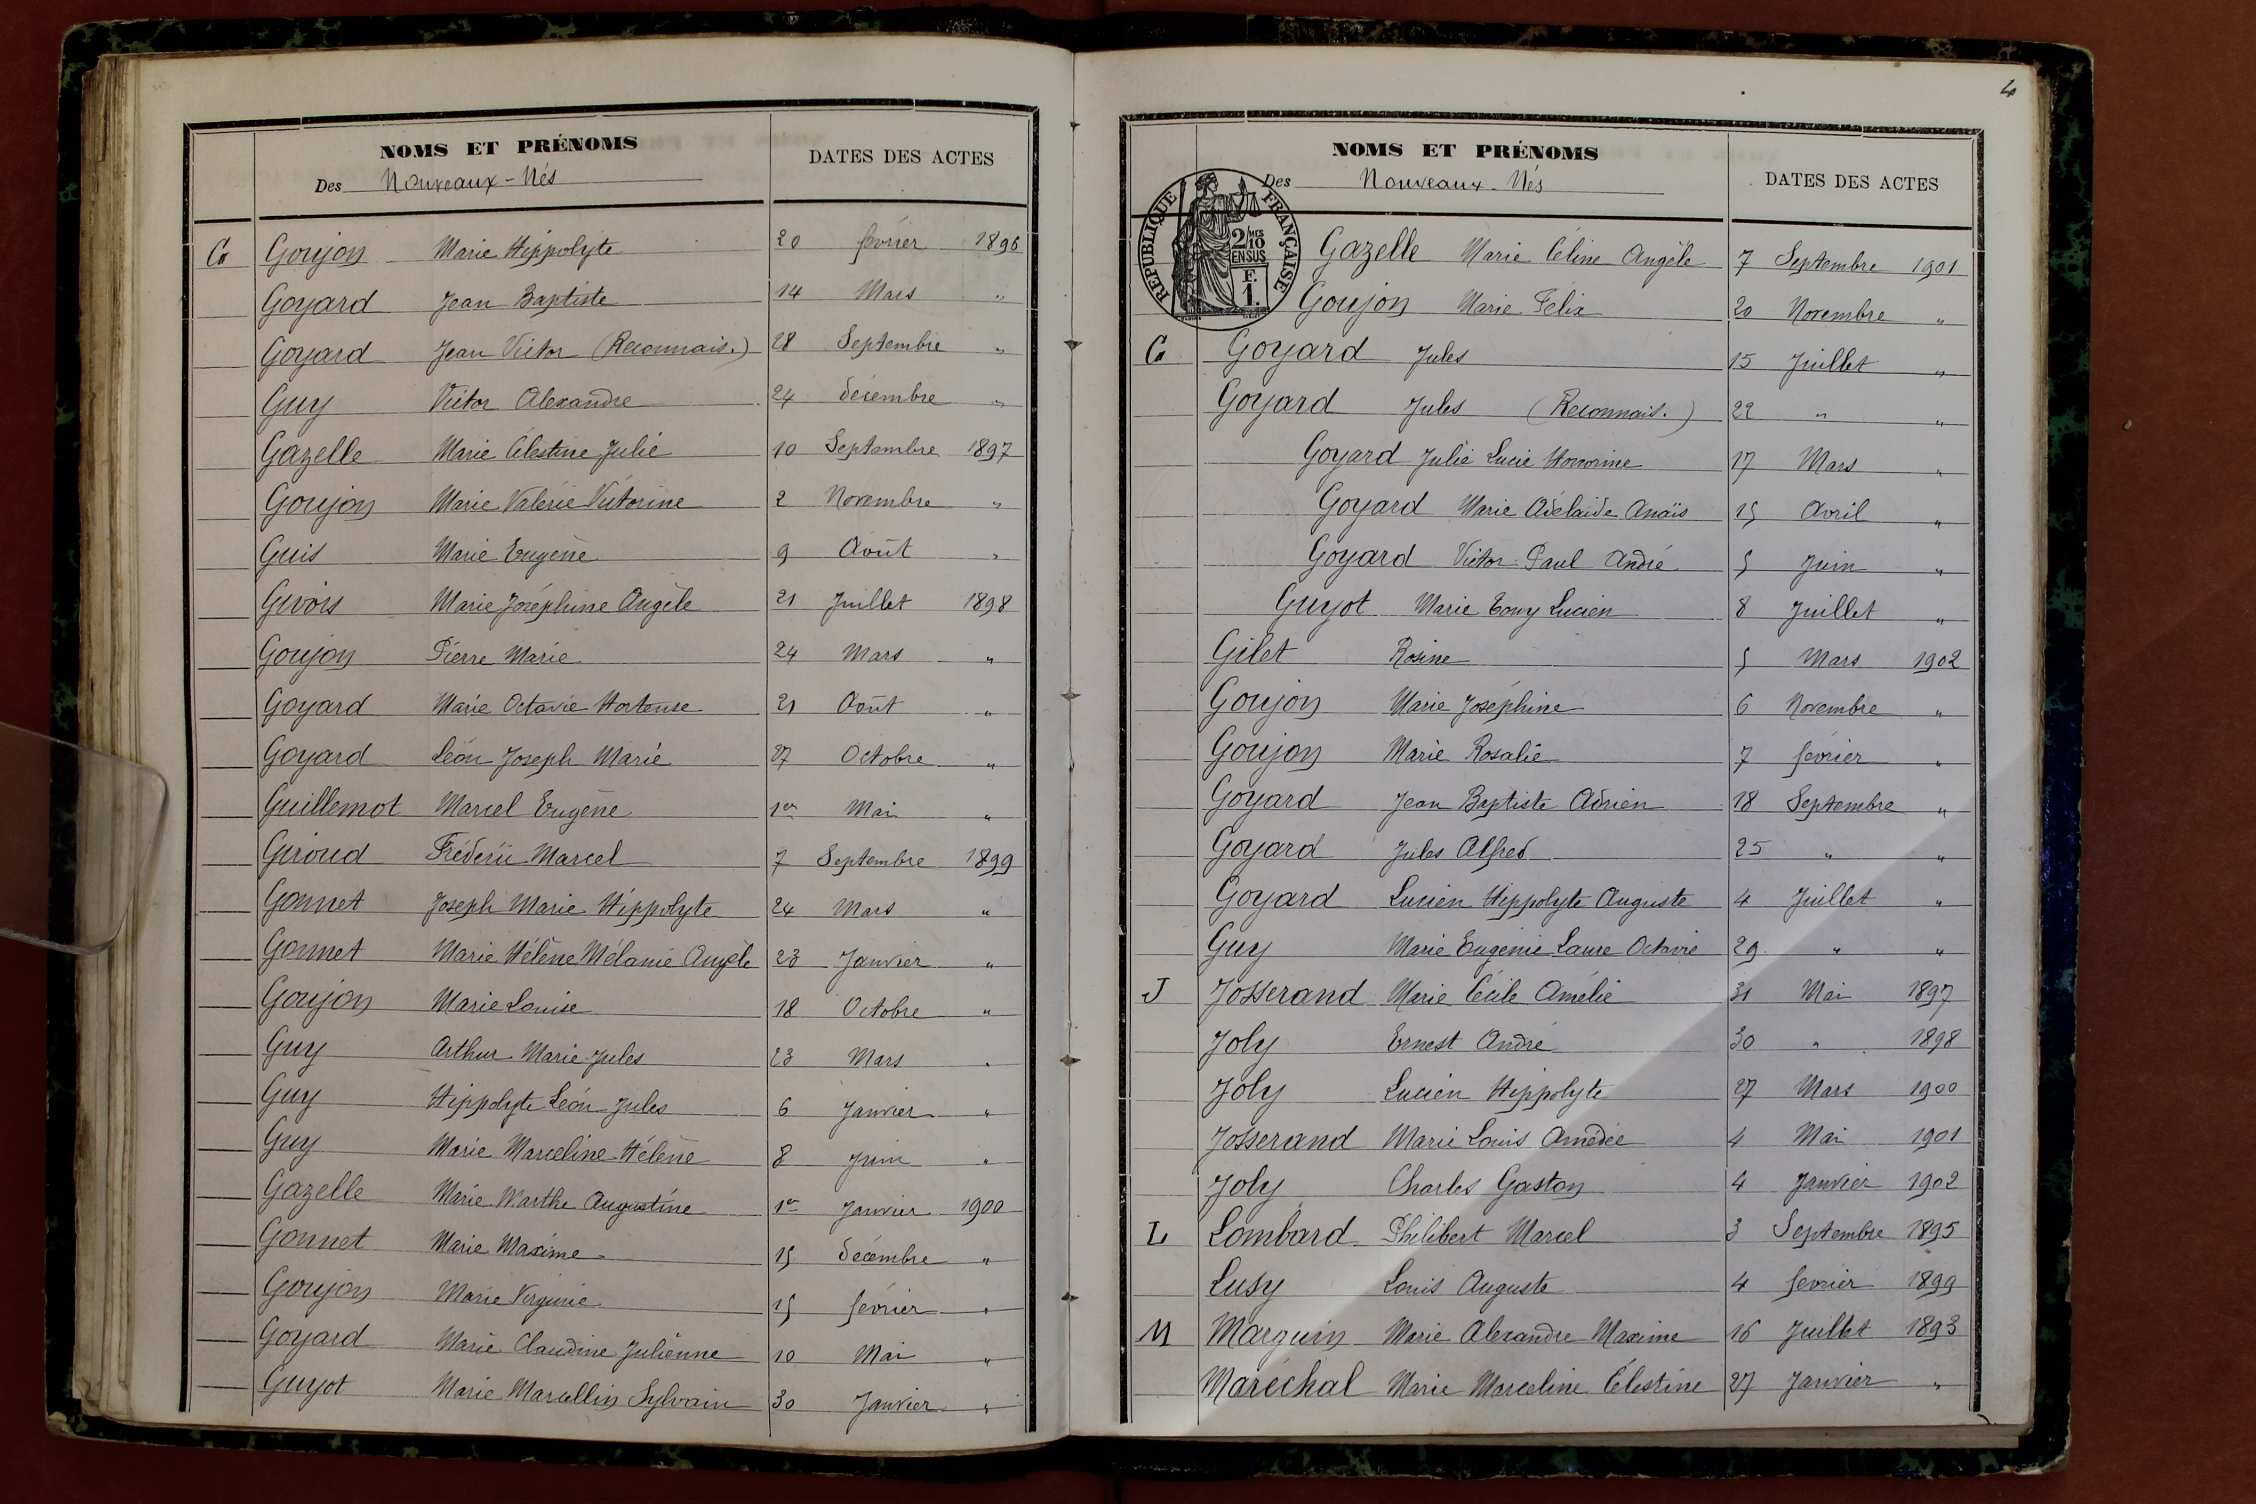 NOMS ET PRÉNOMS
Des Nouveaux-Nés
DATES DES ACTES
G Goujon Marie Hippolyte 20 février 1896
Goyard Jean Baptiste 14 Mars "
Goyard Jean Victor (Reconnais.) 28 Septembre "
Guy Victor Alexandre 24 décembre "
Gazelle Marie Célestine Julie 10 Septembre 1897
Goujon Marie Valérie Victorine 2 Novembre "
Guis Marie Eugène 9 Août "
Givois Marie Joséphine Angèle 21 Juillet 1898
Goujon Pierre Marie 24 Mars "
Goyard Marie Octavie Hortense 21 Août "
Goyard Léon Joseph Marie 27 Octobre "
Guillemot Marcel Eugène 1er Mai "
Giroud Fréderic Marcel 7 Septembre 1899
Gonnet Joseph Marie Hippolyte 24 Mars "
Gonnet Marie Hélène Mélanie Angèle 23 Janvier "
Goujon Marie Louise 18 Octobre "
Guy Arthur Marie Jules 23 Mars "
Guy Hippolyte Léon Jules 6 Janvier "
Guy Marie Marceline Hélène 8 Juin "
Gazelle Marie Marthe Augustine 1er Janvier 1900
Gonnet Marie Maxime 15 décembre "
Goujon Marie Virginie 15 février "
Goyard Marie Claudine Julienne 10 Mai "
Guyot Marie Marcellin Sylvain 30 Janvier "
4
NOMS ET PRÉNOMS
Des Nouveaux-Nés
DATES DES ACTES
RÉPUBLIQUE FRANÇAISE
2/MES 10
EN SUS
F.
1.
Gazelle Marie Céline Angèle 7 Septembre 1901
Goujon Marie Félix 20 Novembre "
G Goyard Jules 15 Juillet "
Goyard Jules (Reconnais.) 22 " "
Goyard Julie Lucie Honorine 17 Mars "
Goyard Marie Adélaide Anaïs 15 Avril "
Goyard Victor Paul André 5 Juin "
Guyot Marie Tony Lucien 8 Juillet "
Gilet Rosine 5 Mars 1902
Goujon Marie Joséphine 6 Novembre "
Goujon Marie Rosalie 7 février "
Goyard Jean Baptiste Adrien 18 Septembre "
Goyard Jules Alfred 25 " "
Goyard Lucien Hippolyte Auguste 4 Juillet "
Guy Marie Eugénie Laure Octavie 29 " "
J Josserand Marie Cécile Amélie 31 Mai 1897
Joly Ernest André 30 " 1898
Joly Lucien Hippolyte 27 Mars 1900
Josserand Marie Louis Amédée 4 Mai 1901
Joly Charles Gaston 4 Janvier 1902
L Lombard Philibert Marcel 3 Septembre 1895
Lusy Louis Auguste 4 février 1899
M Marguin Marie Alexandre Maxime 16 Juillet 1893
Maréchal Marie Marceline Célestine 27 Janvier "